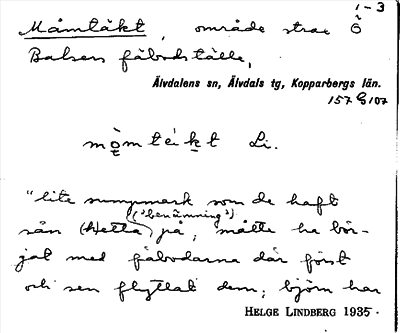 1-3
Måmtäkt, område strax Ö
Balsens fäbodställe,
Älvdalens sn, Älvdals tg, Kopparbergs län.
157 G 107
Li.
"lite sumpmark som de haft
("benämning")
sån (hetta) på, måtte ha bör-
jat med fäbodarna där först
och sen flyttat dem; björn har
HELGE LINDBERG 1935.